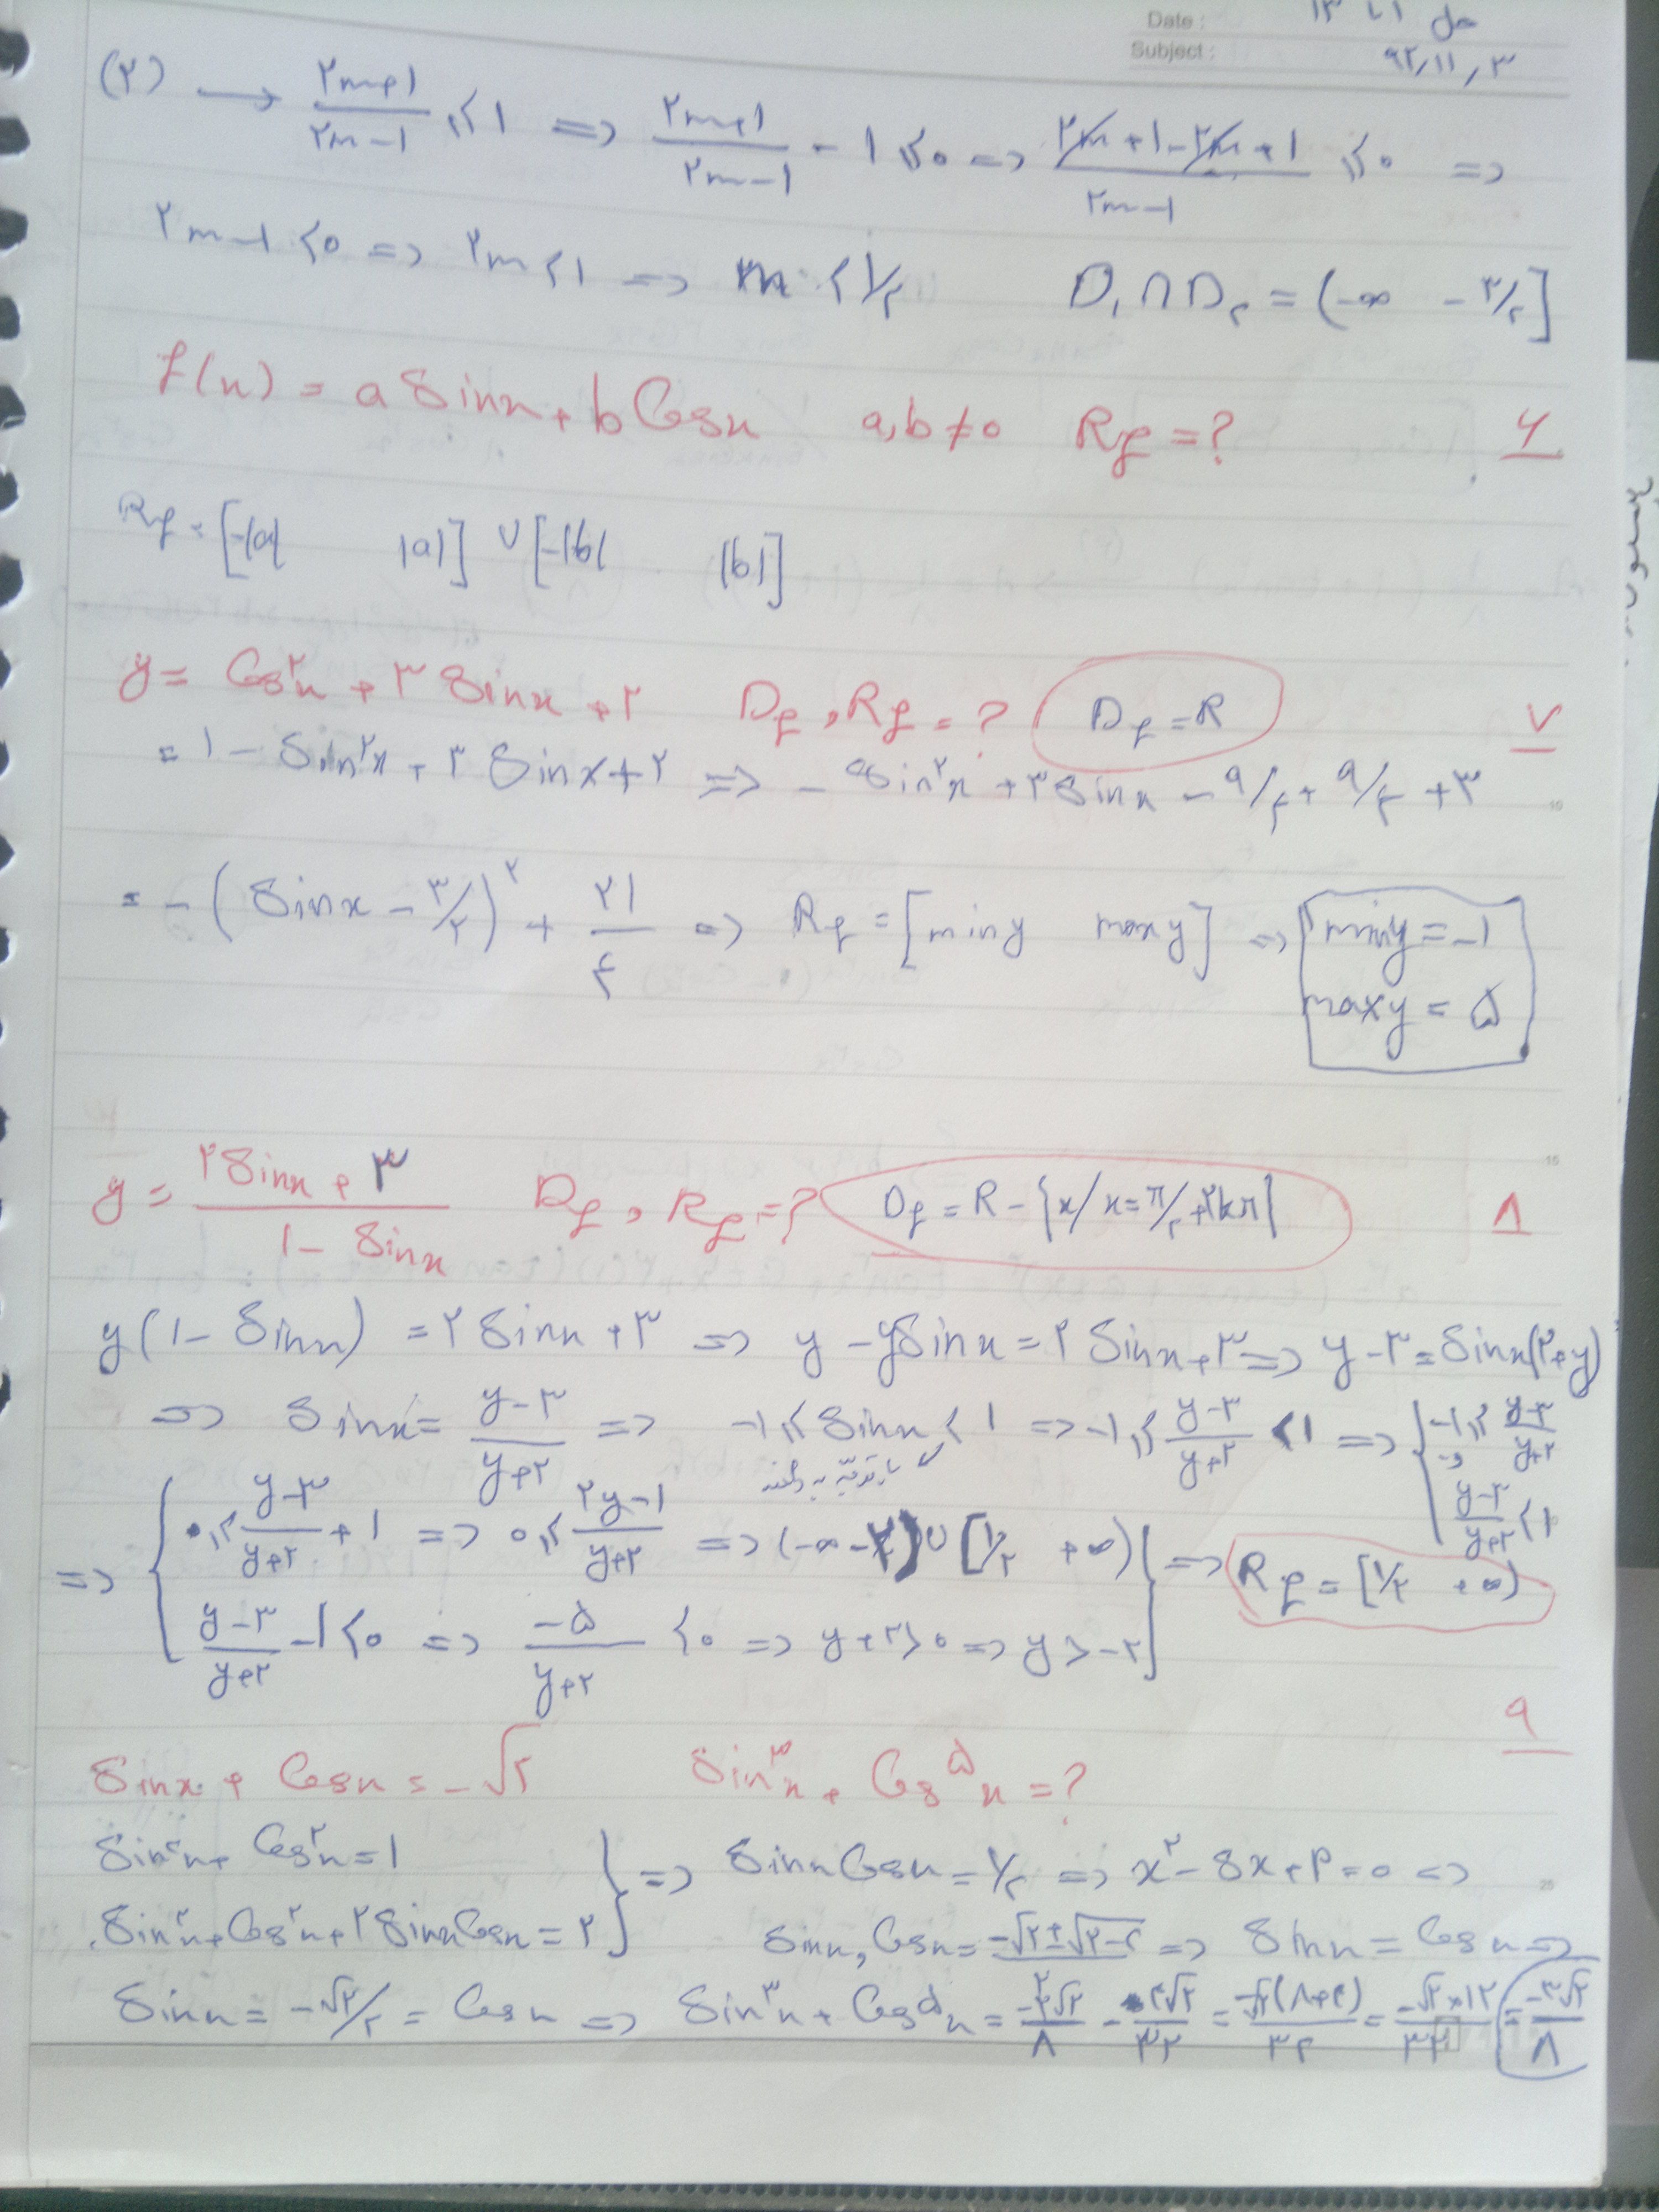 Date :
حل ۱ تا ۱۳
Subject :
۹۲,۱۱,۳
(۲) → (۲m+۱)/(۲m-۱) ⩽ ۱ => (۲m+۱)/(۲m-۱) - ۱ ⩽ ۰ => (۲m+۱-۲m+۱)/(۲m-۱) ⩽ ۰ =>
۲m-۱ < ۰ => ۲m < ۱ => m < ۱/۲ D₁∩D₂ = (-∞ -۳/۲]
f(x) = a Sinx + b Cosx a,b ≠ ۰ Rf = ? ۶
Rf = [-|a| |a|] ∪ [-|b| |b|]
y = Cos²x + ۳ Sinx + ۲ Df , Rf = ? Df = R ۷
= ۱ - Sin²x + ۳ Sinx + ۲ => - Sin²x + ۳ Sinx - ۹/۴ + ۹/۴ + ۳
= - (Sinx - ۳/۲)² + ۲۱/۴ => Rf = [miny maxy] => miny = -۱
maxy = ۵
y = (۲Sinx + ۳)/(۱ - Sinx) Df , Rf = ? Df = R - {x/x = π/۲ + ۲kπ} ۸
y(۱ - Sinx) = ۲Sinx + ۳ => y - ySinx = ۲Sinx + ۳ => y - ۳ = Sinx(۲+y)
=> Sinx = (y-۳)/(y+۲) => -۱ ⩽ Sinx < ۱ => -۱ ⩽ (y-۳)/(y+۲) < ۱ => { -۱ ⩽ (y-۳)/(y+۲)
با توجه به دامنه
(y-۳)/(y+۲) < ۱
=> { ۰ ⩽ (y-۳)/(y+۲) + ۱ => ۰ ⩽ (۲y-۱)/(y+۲) => (-∞ -۲) ∪ [۱/۲ +∞) } => Rf = [۱/۲ +∞)
(y-۳)/(y+۲) - ۱ < ۰ => -۵/(y+۲) < ۰ => y+۲ > ۰ => y > -۲
۹
Sinx + Cosx = -√۲ Sin³x + Cos⁵x = ?
Sin²x + Cos²x = ۱ } => SinxCosx = ۱/۲ => x² - Sx + P = ۰ =>
Sin²x + Cos²x + ۲SinxCosx = ۲ } Sinx, Cosx = (-√۲ ± √(۲-۲))/۲ => Sinx = Cosx =>
Sinx = -√۲/۲ = Cosx => Sin³x + Cos⁵x = -۲√۲/۸ - ۴√۲/۳۲ = -√۲(۸+۴)/۳۲ = -√۲×۱۲/۳۲ = -۳√۲/۸